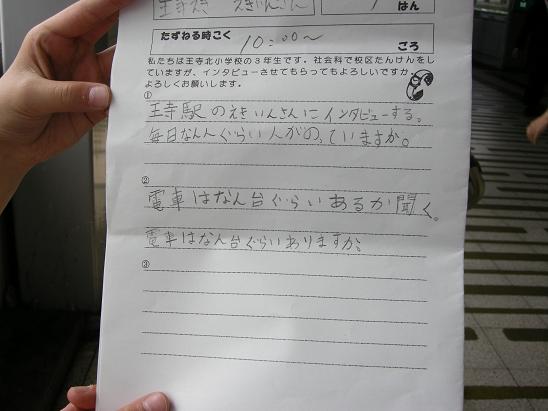 王寺駅 えきいんさん
はん
たずねる時こく 10:00〜 ころ
私たちは王寺北小学校の3年生です。社会科で校区たんけんをし
ていますが、インタビューさせてもらってもよろしいですか。
よろしくお願いします。
①
王寺駅のえきいんさんにインタビューする。
毎日なんんぐらい人がのっていますか。
②
電車はなん台ぐらいあるか聞く。
電車はなん台ぐらいありますか。
③